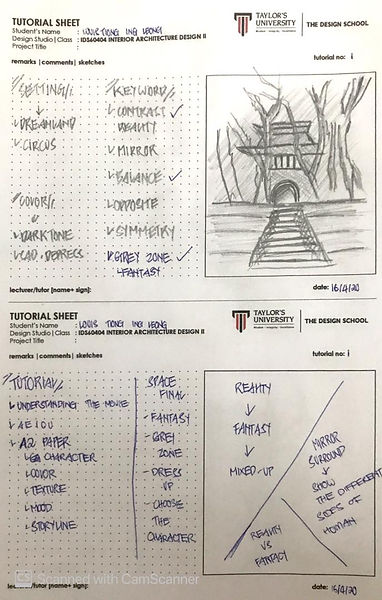 TUTORIAL SHEET
Student's Name : LOUIS TIONG ING LEONG
Design Studio | Class : IDS60404 INTERIOR ARCHITECTURE DESIGN II
Project Title :
TAYLOR'S UNIVERSITY
THE DESIGN SCHOOL
remarks | comments | sketches
tutorial no: i
SETTING//
↓
DREAMLAND
CIRCUS
COLOR//
↓
DARKTONE
SAD - DEPRESS
KEYWORD//
CONTRAST ✓
REALITY
MIRROR
BALANCE ✓
OPPOSITE
SYMMETRY
GREY ZONE ✓
FANTASY
lecturer/tutor [name+ sign]:
date: 16/4/20
TUTORIAL SHEET
Student's Name : LOUIS TIONG ING LEONG
Design Studio | Class : IDS60404 INTERIOR ARCHITECTURE DESIGN II
Project Title :
TAYLOR'S UNIVERSITY
THE DESIGN SCHOOL
remarks | comments | sketches
tutorial no: i
TUTORIAL//
UNDERSTANDING THE MOVIE
A E I O U
A2 PAPER
CHARACTER
COLOR
TEXTURE
MOOD
STORYLINE
SPACE
FINAL
- FANTASY
- GREY
ZONE
- DRESS
UP
- CHOOSE
THE
CHARACTER
REALITY
↓
FANTASY
↓
MIXED-UP
MIRROR
SURROUND
↓
SHOW
THE DIFFERENT
SIDES OF
HUMAN
REALITY
VS
FANTASY
lecturer/tutor [name+ sign]:
date: 16/4/20
CS Scanned with CamScanner